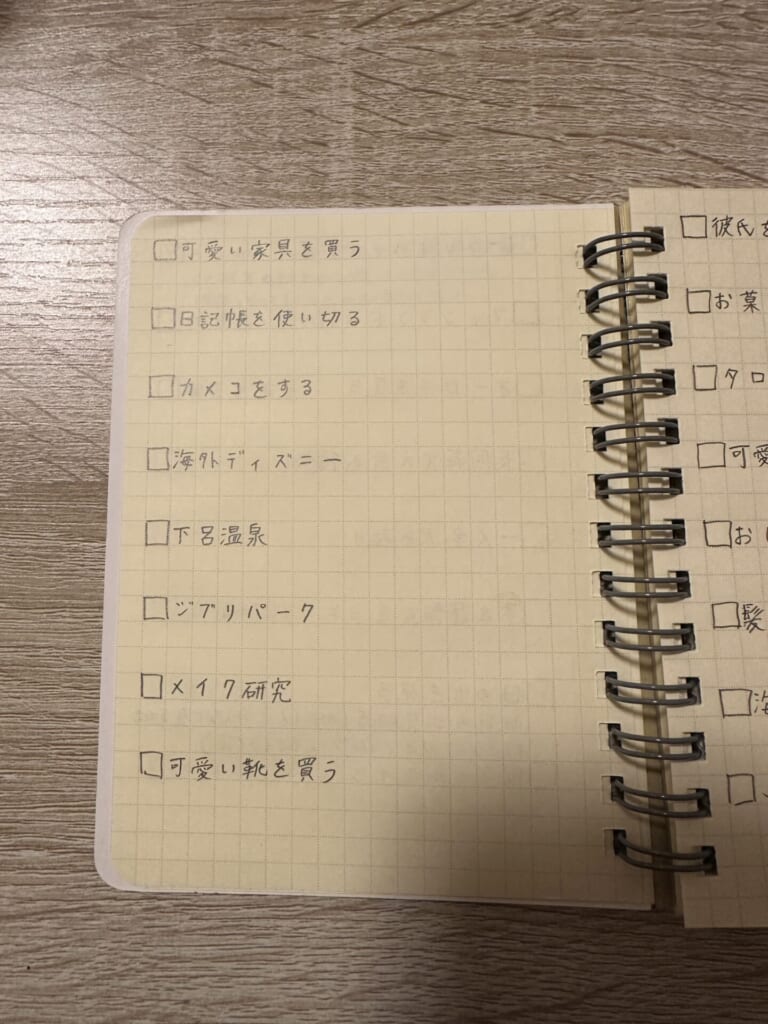 □可愛い家具を買う
□日記帳を使い切る
□カメコをする
□海外ディズニー
□下呂温泉
□ジブリパーク
□メイク研究
□可愛い靴を買う
□彼氏を
□お菓
□タロ
□可愛
□お
□髪
□海
□